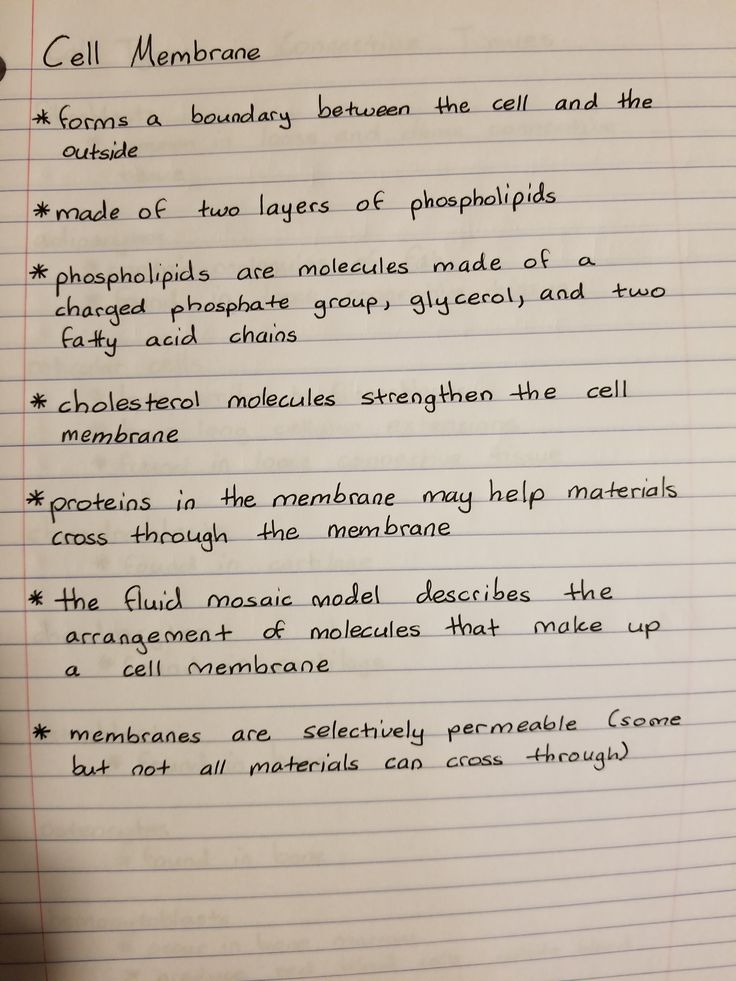 Cell Membrane
* forms a boundary between the cell and the
outside
* made of two layers of phospholipids
* phospholipids are molecules made of a
charged phosphate group, glycerol, and two
fatty acid chains
* cholesterol molecules strengthen the cell
membrane
* proteins in the membrane may help materials
cross through the membrane
* the fluid mosaic model describes the
arrangement of molecules that make up
a cell membrane
* membranes are selectively permeable (some
but not all materials can cross through)